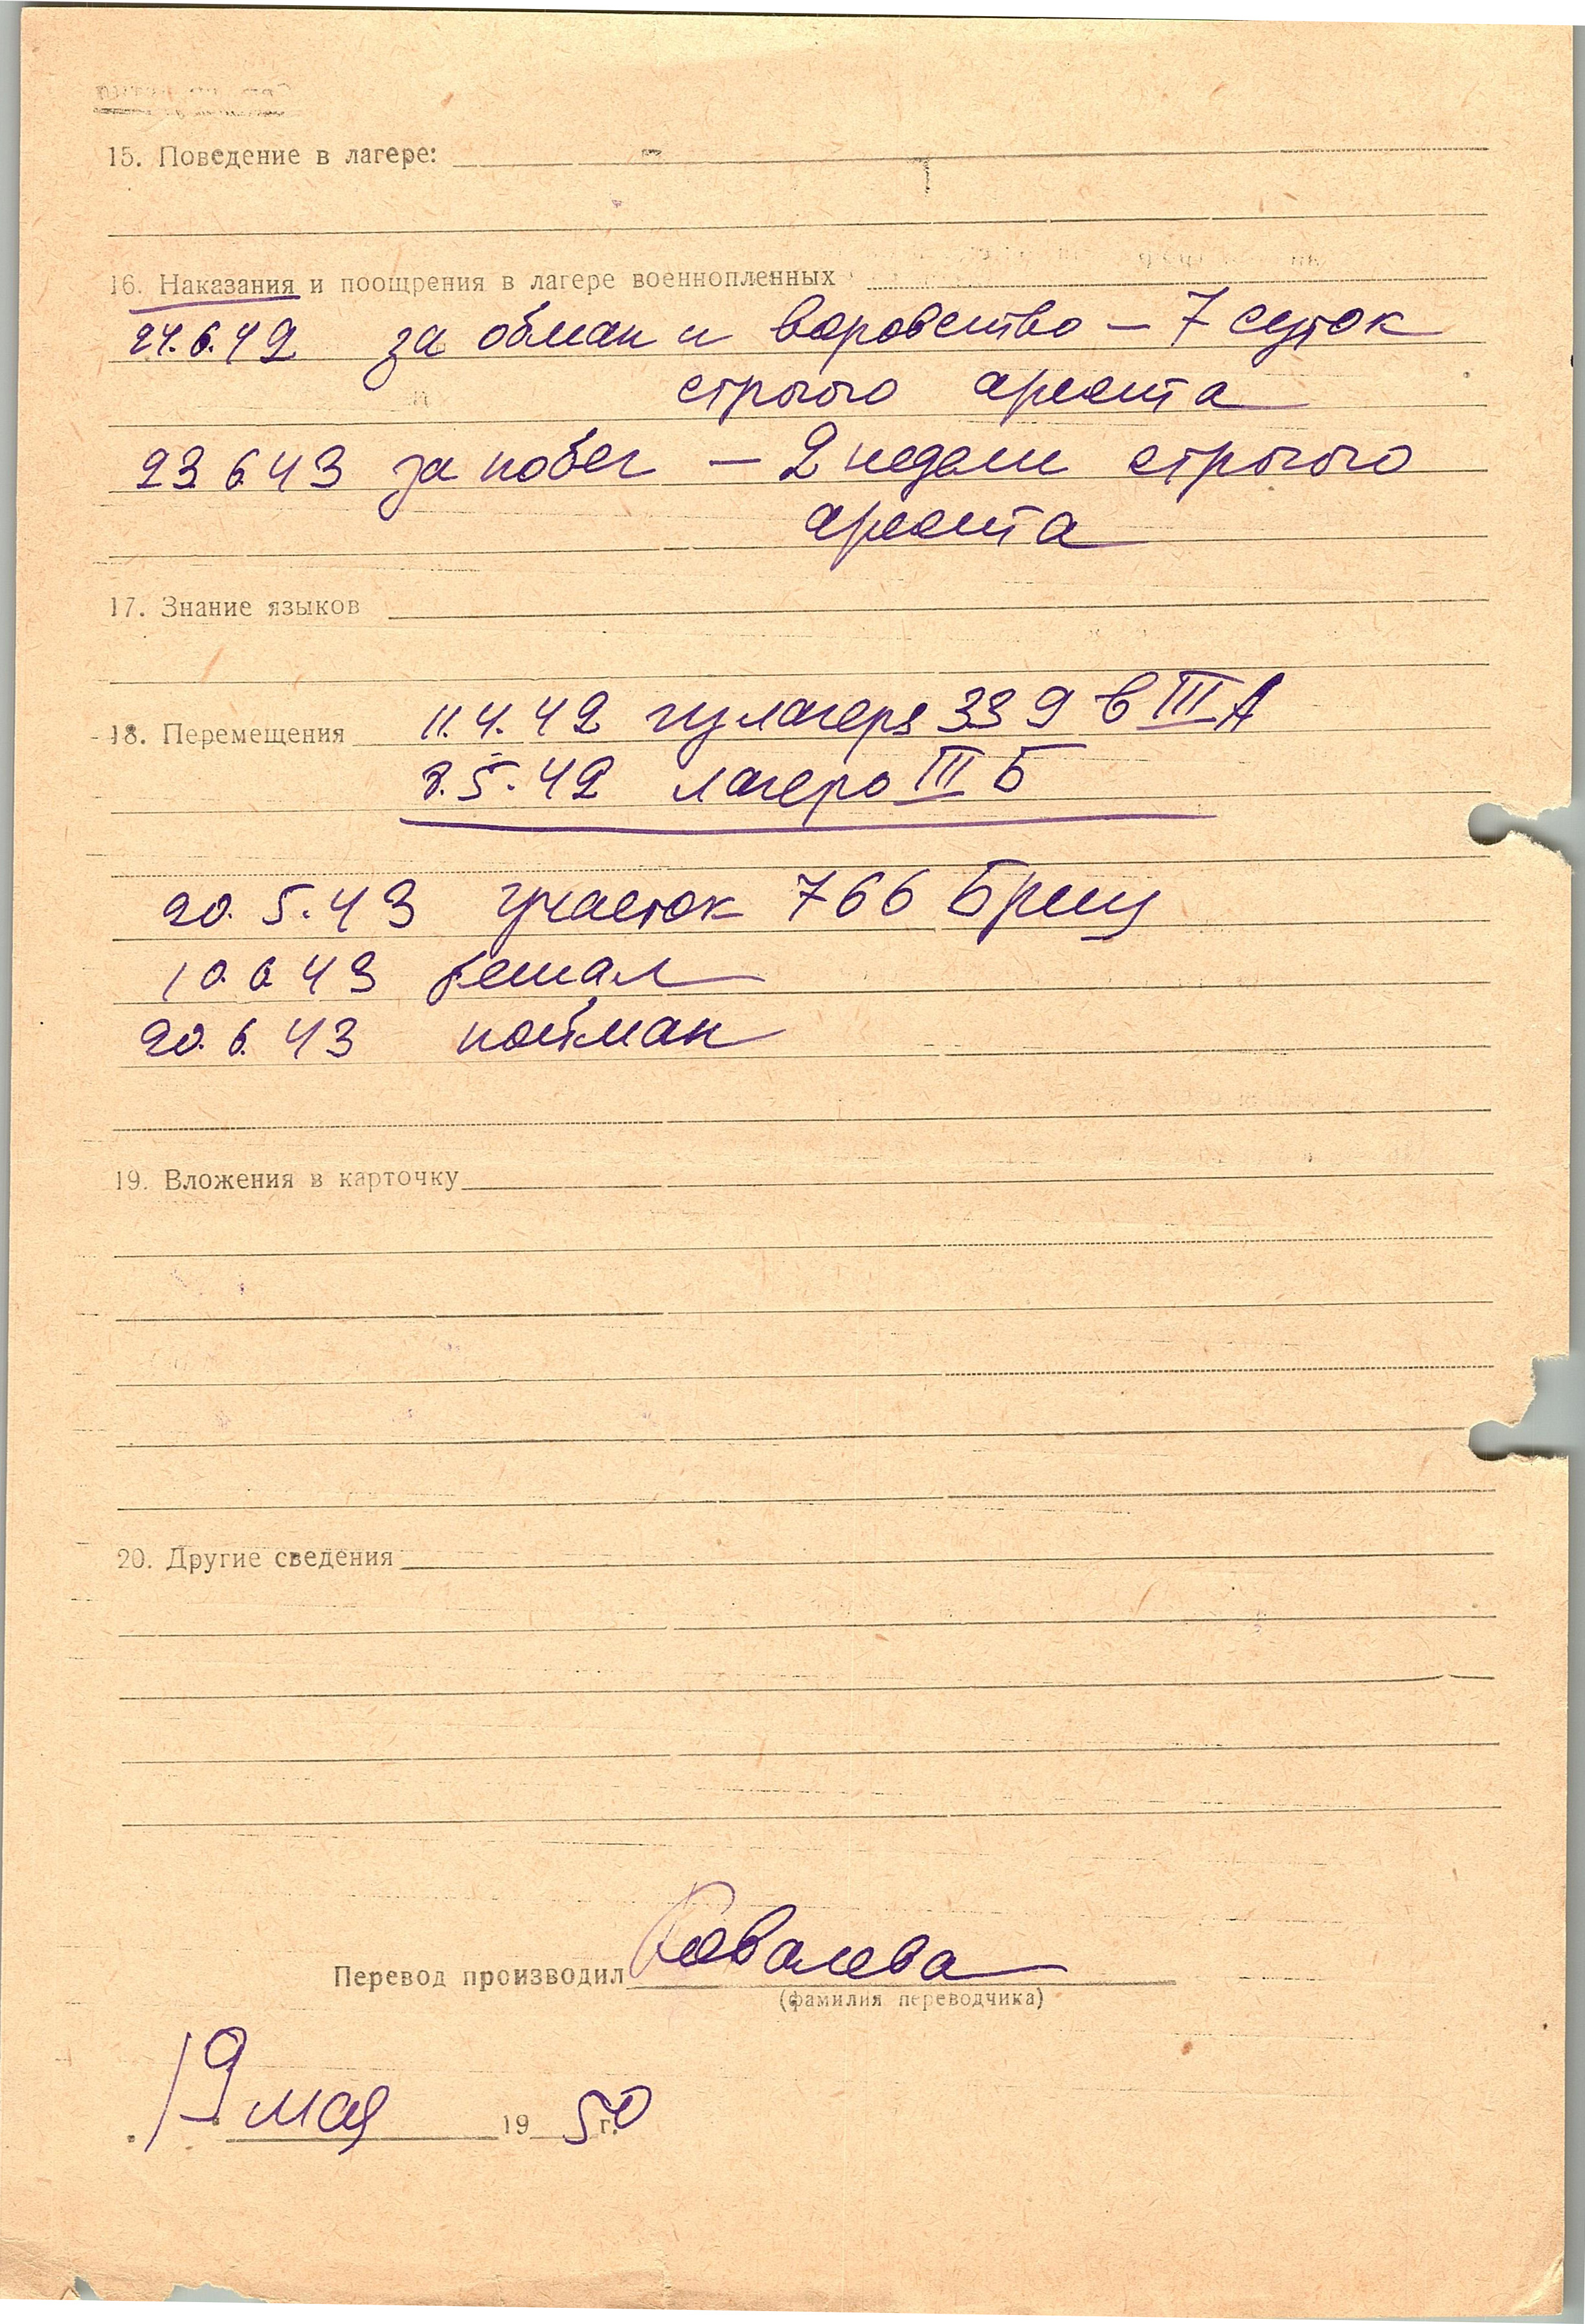 15. Поведение в лагере: -
16. Наказания и поощрения в лагере военнопленных
24.6.42 за обман и воровство – 7 суток
строгого ареста
23 6.43 за побег – 2 недели строгого
ареста
17. Знание языков
18. Перемещения 11.4.42 из лагеря 339 в III А
8.5.42 лагерь III Б
20. 5.43 участок 766 Бриц
10.6.43 бежал
20.6.43 пойман
19. Вложения в карточку
20. Другие сведения
Перевод производил Ковалева
(фамилия переводчика)
19 мая 1950 г.